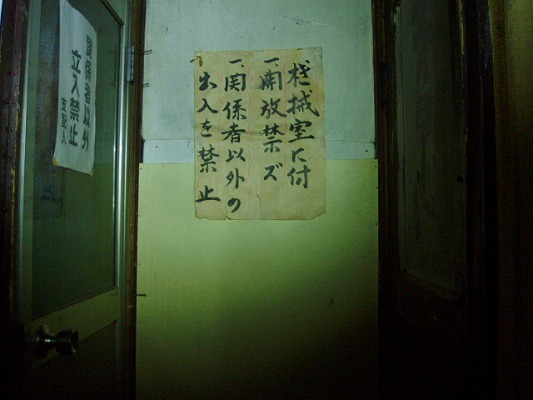 機械室に付
一、開放禁ズ
一、関係者以外の
出入を禁止
関係者以外
立入禁止
支配人